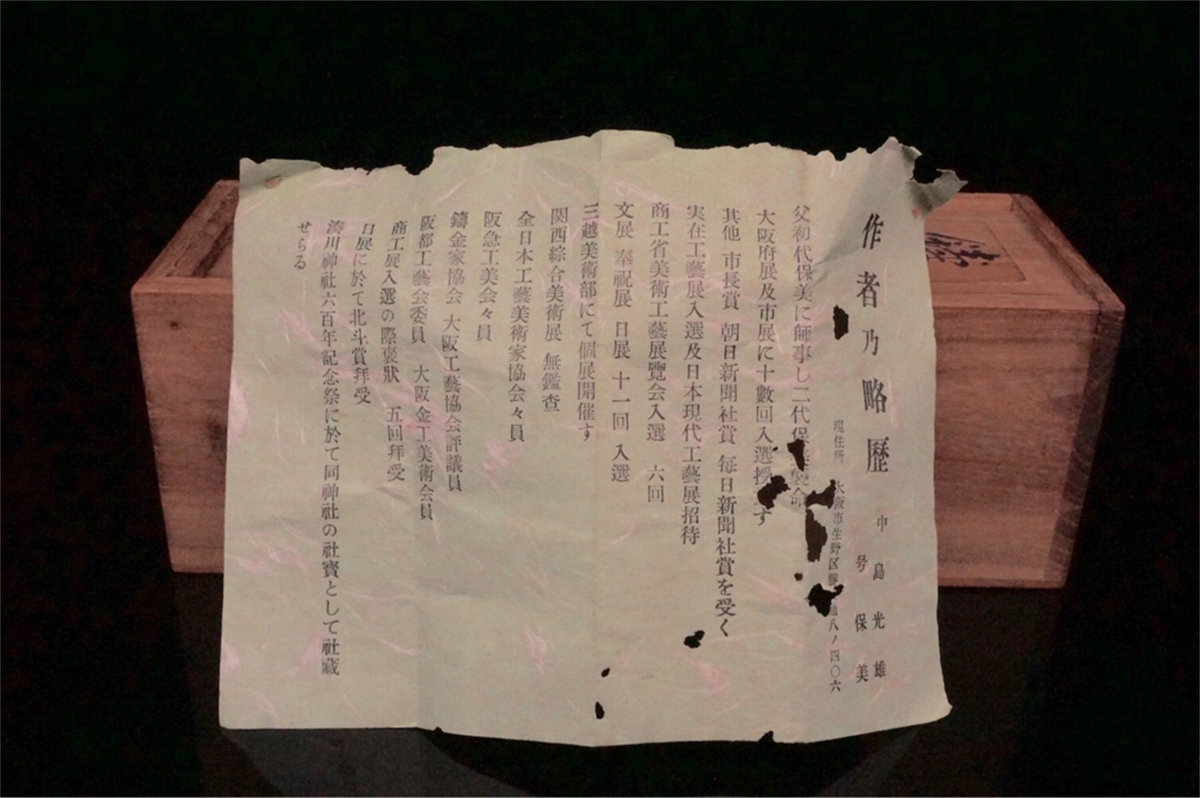 作者乃略歴
中島光雄
号 保美
現住所 大阪市生野区 八ノ四〇六
父初代保美に師事し二代保 襲命
大阪府展及市展に十數回入選授 す
其他 市長賞 朝日新聞社賞 毎日新聞社賞を受く
実在工藝展入選及日本現代工藝展招待
商工省美術工藝展覽会入選 六回
文展 奉祝展 日展 十一回 入選
三越美術部にて個展開催す
関西綜合美術展 無鑑査
全日本工藝美術家協会々員
阪急工美会々員
鑄金家協会 大阪工藝協会評議員
阪都工藝会委員 大阪金工美術会員
商工展入選の際褒狀 五回拜受
日展に於て北斗賞拜受
湊川神社六百年記念祭に於て同神社の社寳として社藏
せらる